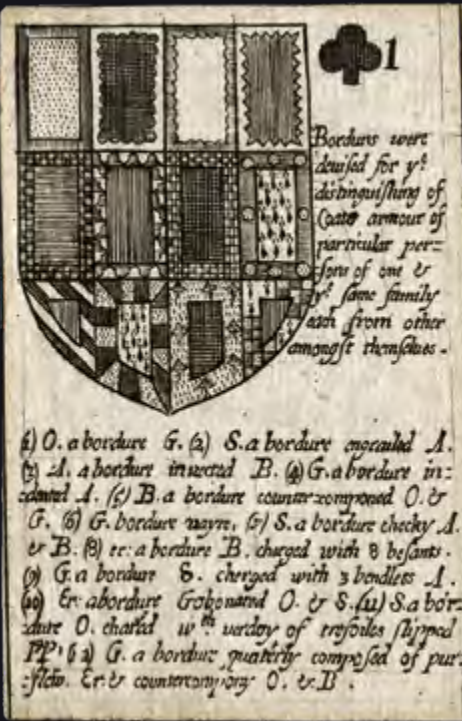 1
Bordurs were
devised for yᵉ
distinguishing of
Coate armour of
particular per=
sons of one &
yᵉ same family
each from other
amongst themselves.
(1) O. a bordure G. (2) S. a bordure engrailed A.
(3) A. a bordure invected B. (4) G. a bordure in:
dented A. (5) B. a bordure counter-componed O. &
G. (6) G. bordure vayre, (7) S. a bordure checky A.
& B. (8) er: a bordure B. charged with 8 besants.
(9) G. a bordure S. cherged with 3 bendlets A.
(10) Er: a bordure Gobonated O. & S. (11) S. a bor:
dure O. with verdoy of trefoiles slipped
G. a bordure quaterly composed of pur:
:flew. Er: & countercompony O. & B.